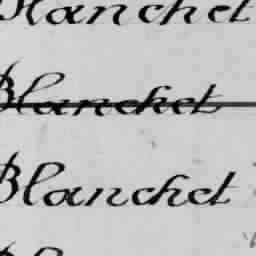 Blanchet
Blanchet
Blanchet